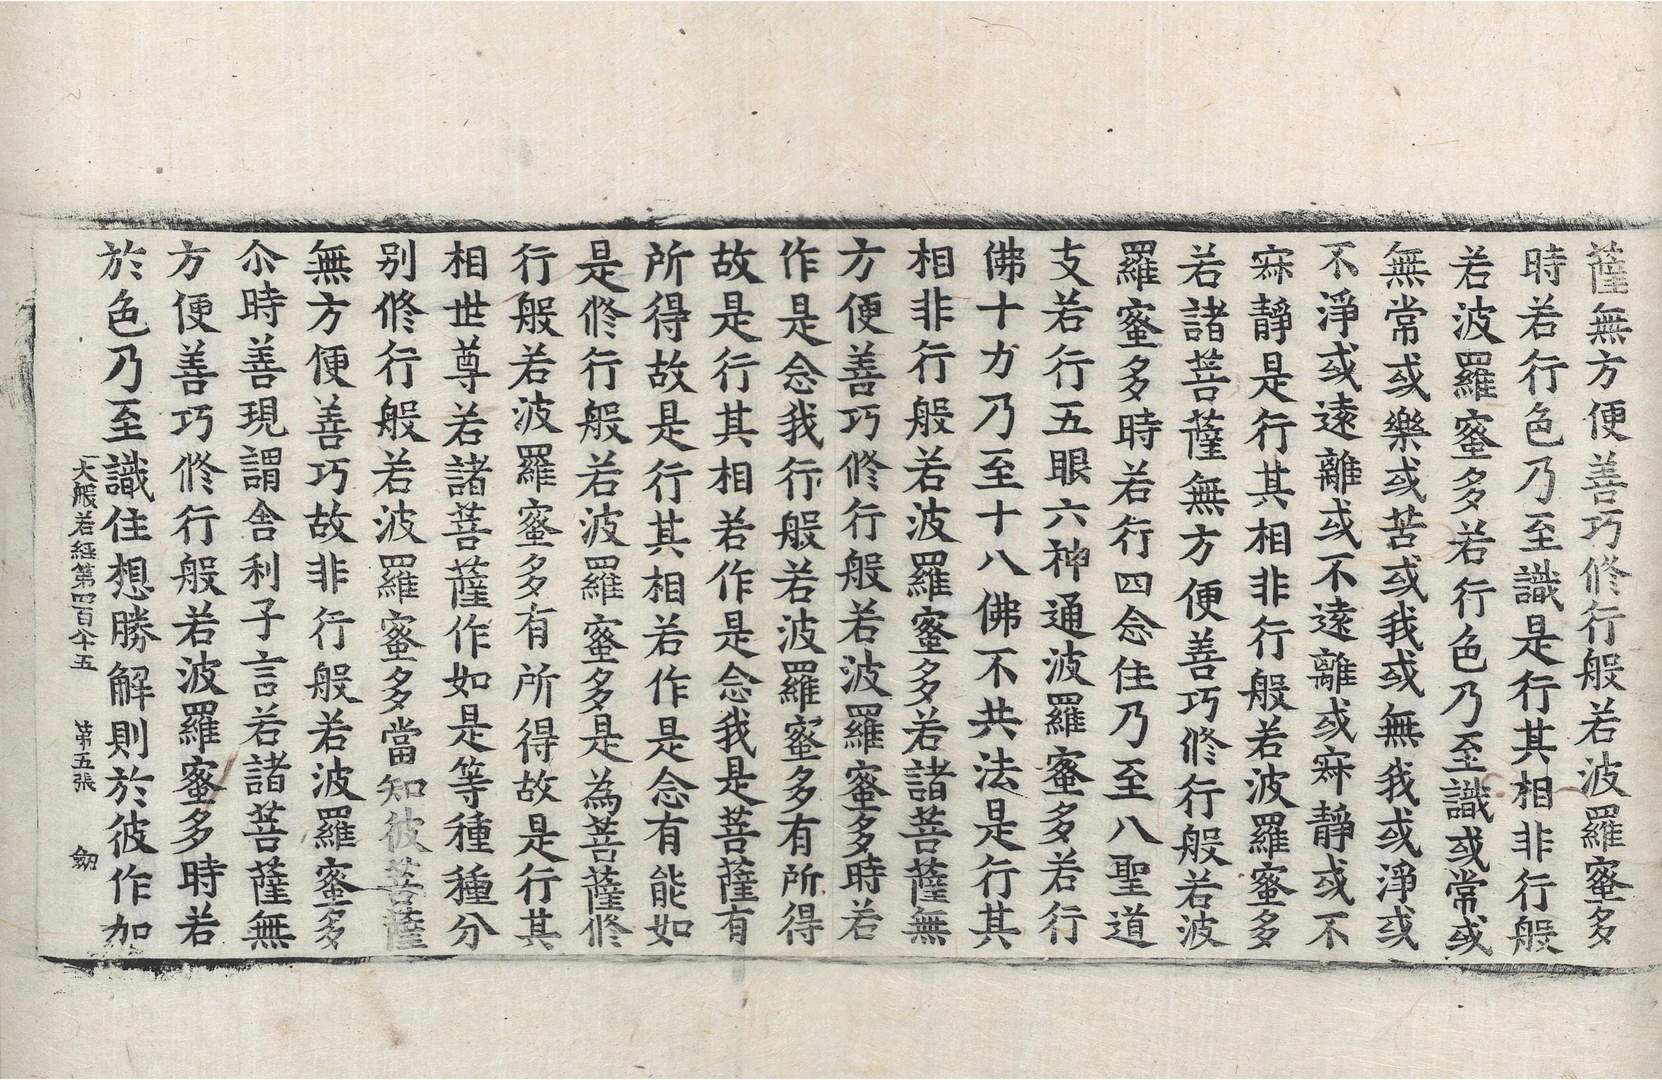 薩無方便善巧修行般若波羅蜜多
時若行色乃至識是行其相非行般
若波羅蜜多若行色乃至識或常或
無常或樂或苦或我或無我或淨或
不淨或遠離或不遠離或寂靜或不
寂靜是行其相非行般若波羅蜜多
若諸菩薩無方便善巧修行般若波
羅蜜多時若行四念住乃至八聖道
支若行五眼六神通波羅蜜多若行
佛十力乃至十八佛不共法是行其
相非行般若波羅蜜多若諸菩薩無
方便善巧修行般若波羅蜜多時若
作是念我行般若波羅蜜多有所得
故是行其相若作是念我是菩薩有
所得故是行其相若作是念有能如
是修行般若波羅蜜多是為菩薩修
行般若波羅蜜多有所得故是行其
相世尊若諸菩薩作如是等種種分
別修行般若波羅蜜多當知彼菩薩
無方便善巧故非行般若波羅蜜多
尒時善現謂舍利子言若諸菩薩無
方便善巧修行般若波羅蜜多時若
於色乃至識住想勝解則於彼作加
大般若經第四百八十五 第五張 劒